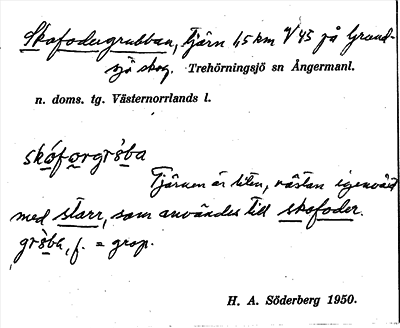 Skofodergrubban, Tjärn 1,5 km V 45 på Grand-
sjö skog. Trehörningsjö sn Ångermanl.
n. doms. tg. Västernorrlands l.
skófọrgrò̀ba
Tjärnen är liten, nästan igenväxt
med starr, som användes till skofoder.
grò̀ba, f. = grop.
H. A. Söderberg 1950.